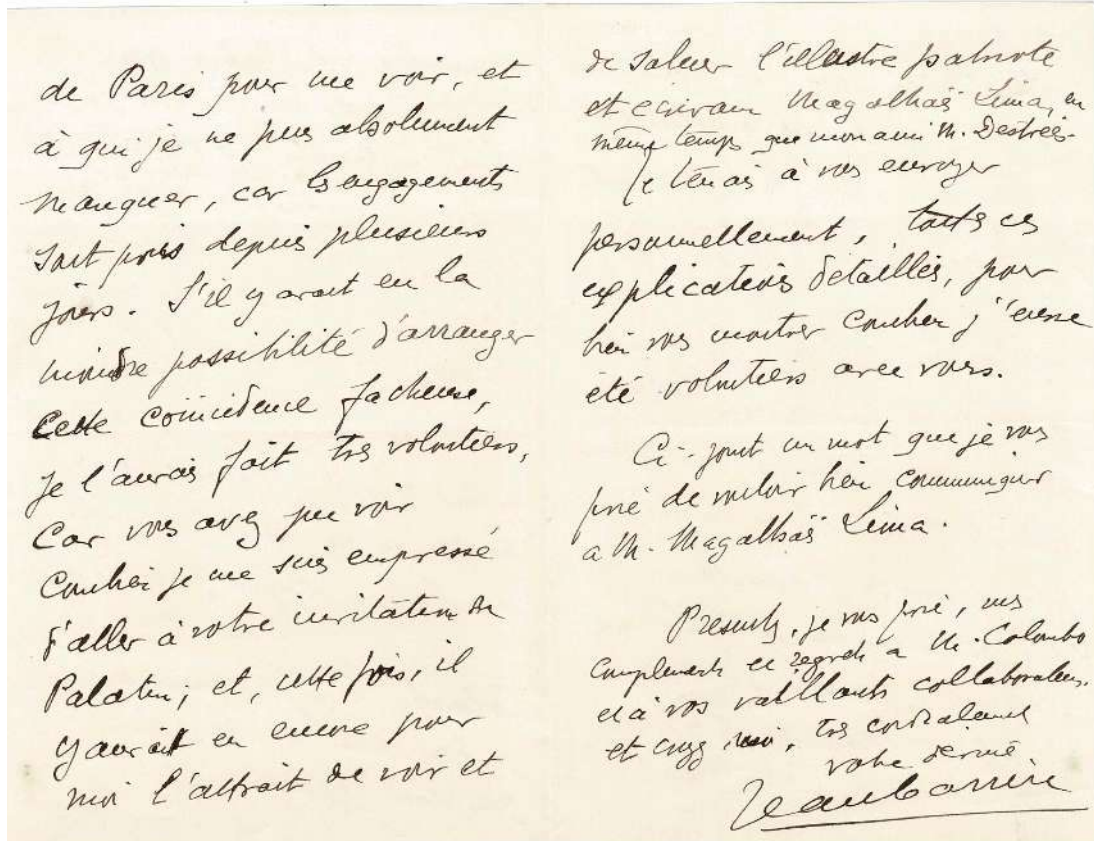 de Paris pour me voir, et
à qui je ne puis absolument
manquer, car les engagements
sont pris depuis plusieurs
jours. S'il y avait eu la
moindre possibilité d'arranger
cette coïncidence facheuse,
je l'aurais fait très volontiers,
car vous avez pu voir
combien je me suis empressé
d'aller à votre invitation du
Palatin; et, cette fois, il
y aurait eu encore pour
moi l'attrait de voir et
de saluer l'illustre patriote
et écrivain Magalhaës Lima, en
même temps que mon ami M. Destrées.
Je tenais à vous envoyer
personnellement, toutes ces
explications détaillés, pour
bien vous montrer combien j'eusse
été volontiers avec vous.
Ci-joint un mot que je vous
prie de vouloir bien communiquer
a M. Magalhaës Lima.
Presentez, je vous prie, mes
compliments et regrets a M. Colombo
et à vos vaillants collaborateurs,
et croyez moi, très cordialement
votre dévoué
Jean Carrère